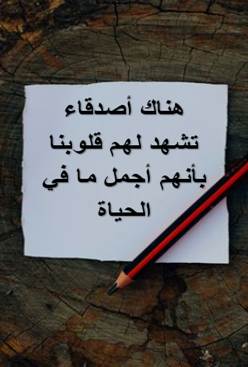 هناك أصدقاء
تشهد لهم قلوبنا
بأنهم أجمل ما في
الحياة